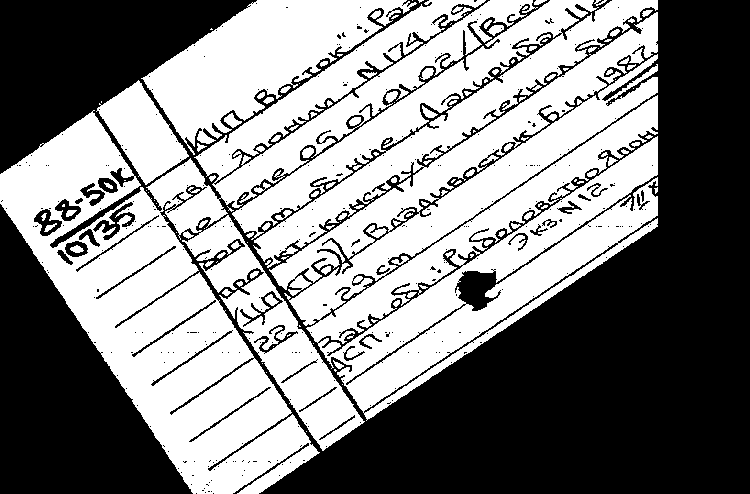 88-50К
10735
КЦП „Восток“: Раз
ство Японии; N 174.29
по теме 05.07.01.02/[Всес
бопром. об-ние „Дальрыба“, Це
проект.-конструкт. и технол. бюро
(ЦПКТБ)].-Владивосток: Б.и., 1987.
22 с.; 29 cm.
Загл. обл.: Рыболовство Япони
ДСП. Экз. N 12.